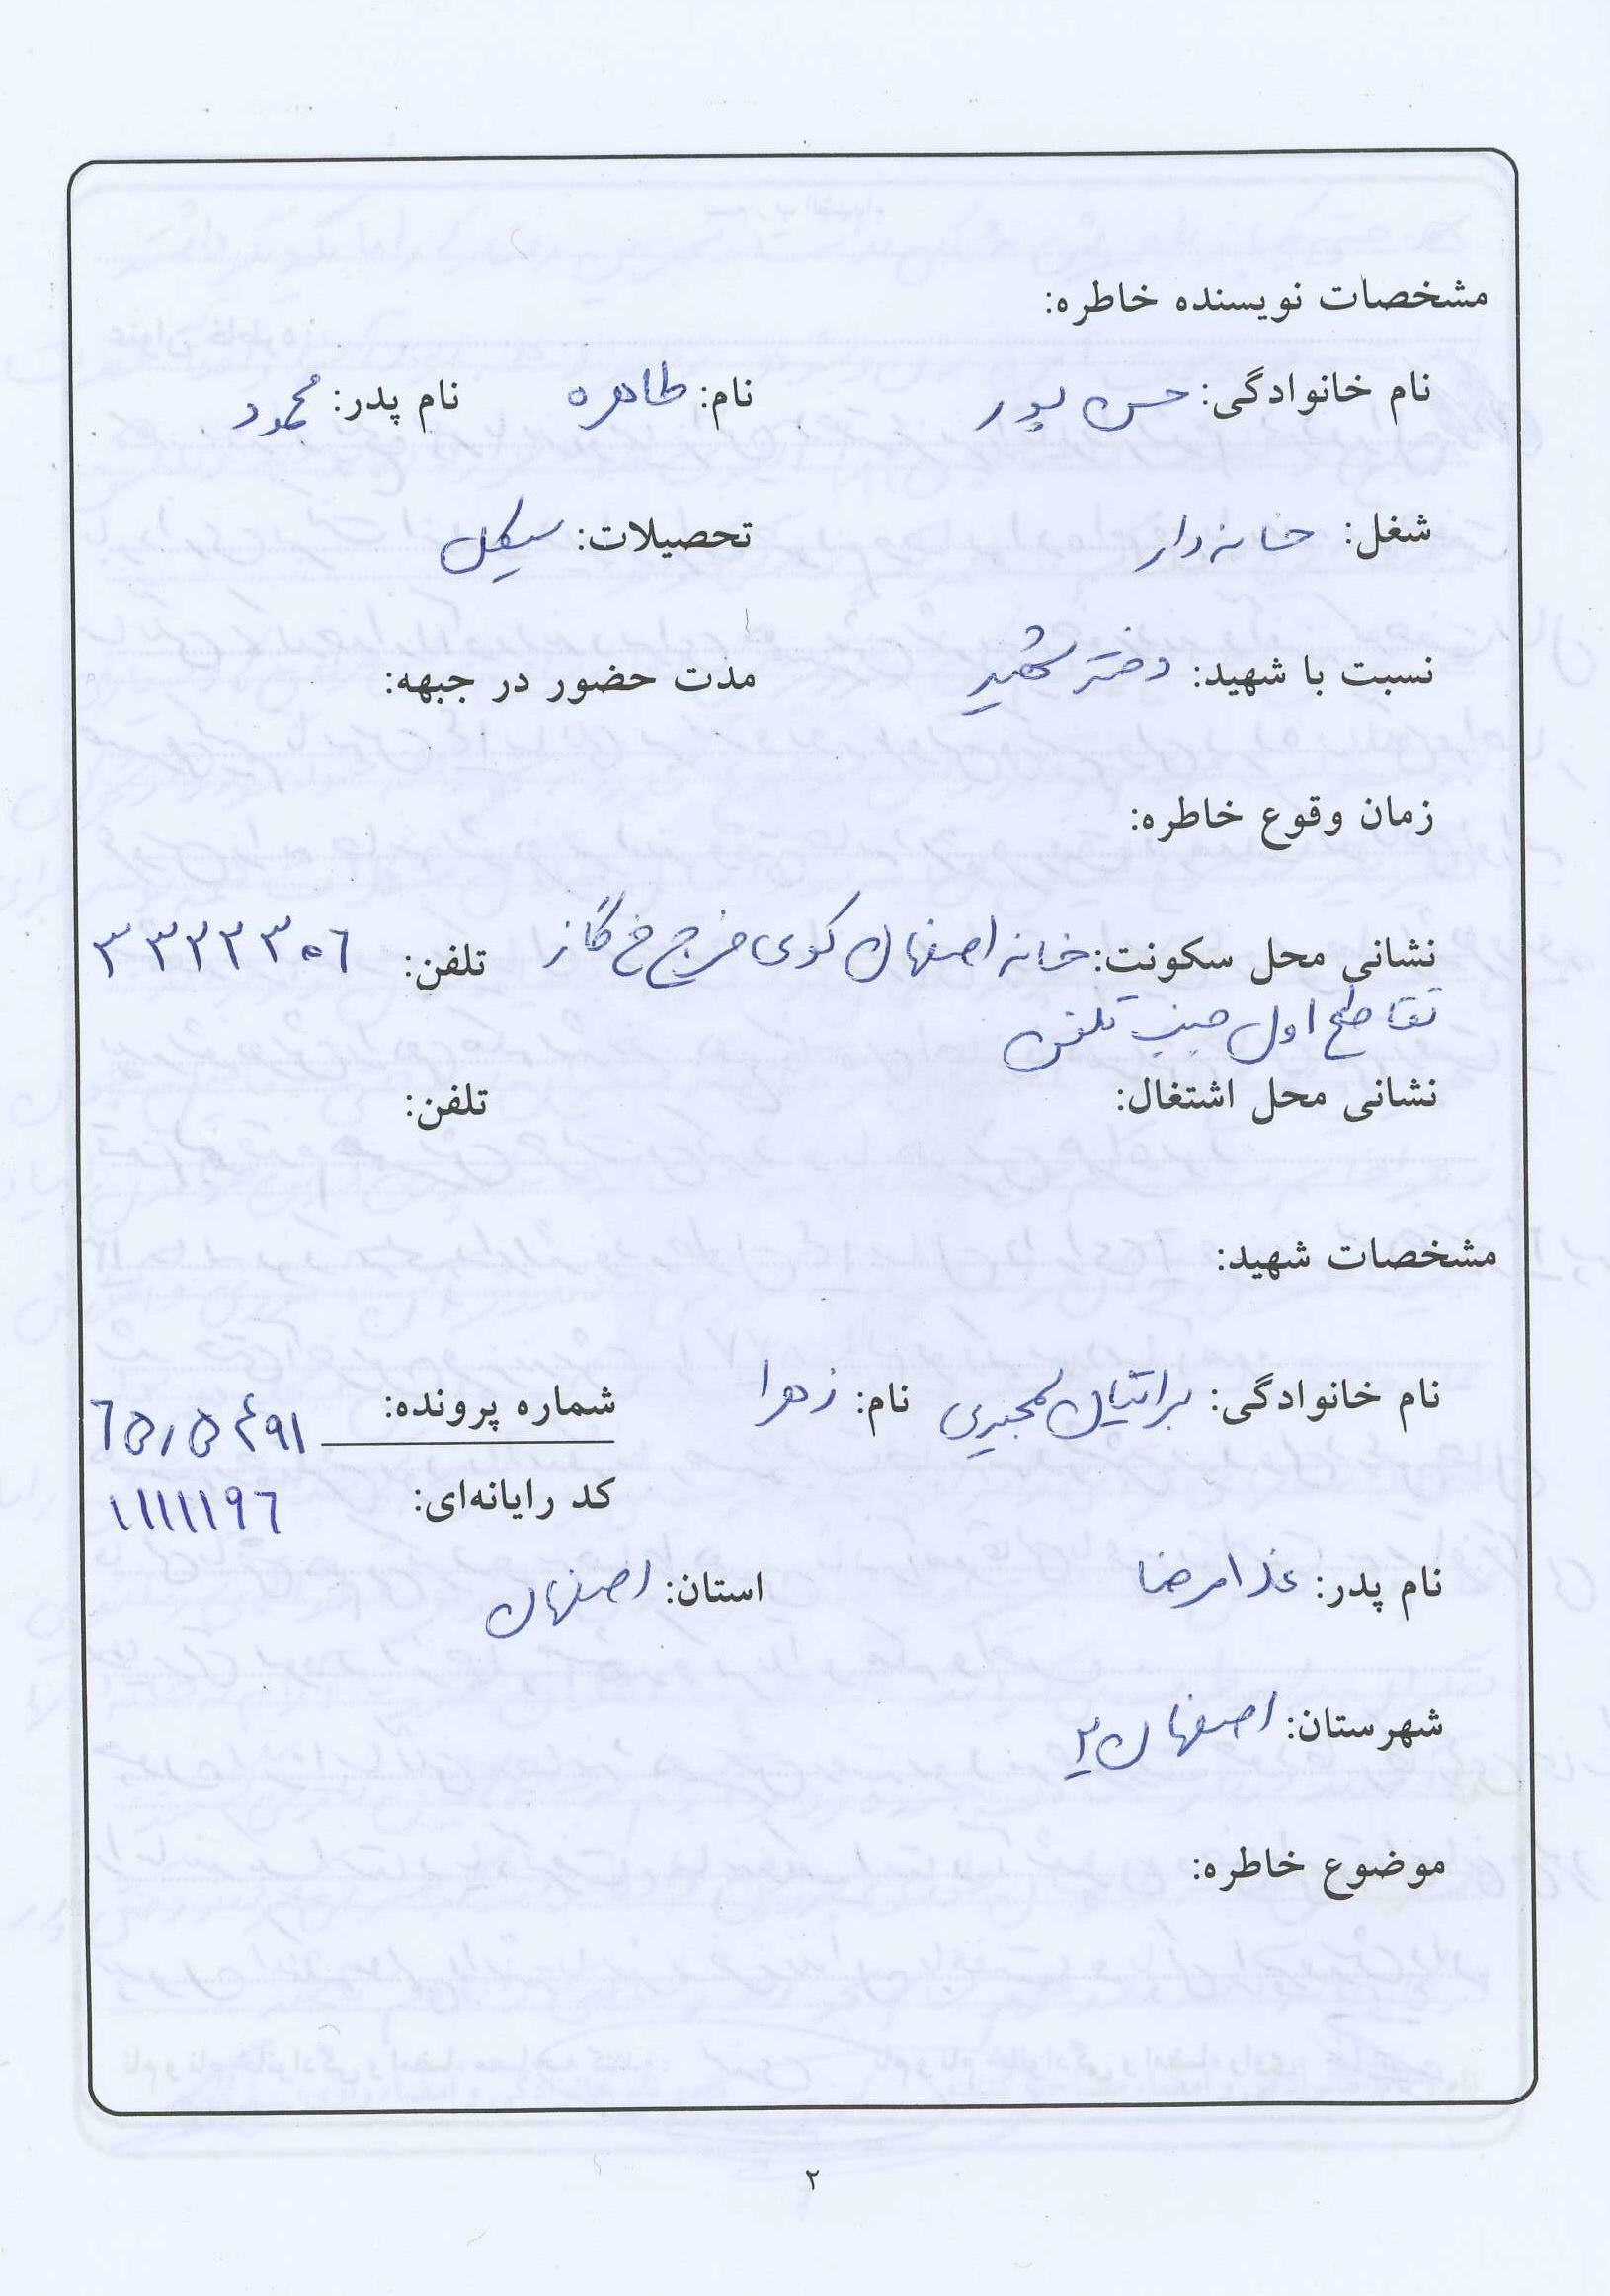 مشخصات نویسنده خاطره:
نام خانوادگی: حسن پور نام: طاهره نام پدر: محمود
شغل: خانه دار تحصیلات: سیکل
نسبت با شهید: دختر شهید مدت حضور در جبهه:
زمان وقوع خاطره:
نشانی محل سکونت: خانه اصفهان کوی فرج خ گاز تلفن: ۳۳۲۲۳۰۶
تقاطع اول جنب تلفن
نشانی محل اشتغال: تلفن:
مشخصات شهید:
نام خانوادگی: براتیان نام: زهرا شماره پرونده:
کد رایانه‌ای: ۱۱۱۱۱۹۶
نام پدر: غلامرضا استان: اصفهان
شهرستان: اصفهان ۲
موضوع خاطره:
۲